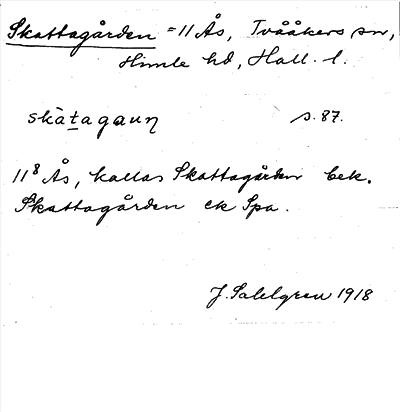 Skattagården = 11 Ås, Tvååkers sn,
Himle hd, Hall. l.
skàtagaun s. 87.
11⁸ Ås, kallas Skattagården bek.
Skattagården ek Spa.
J. Sahlgren 1918